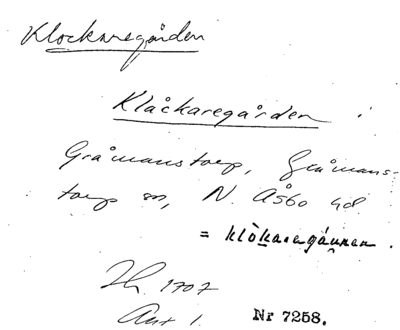 Klockaregården
Klåckaregården i
Gråmanstorp, Gråmans-
torp sn, N. Åsbo hd
= klòkaregánnen.
Jb. 1707
Ant 1.
Nr 7258.